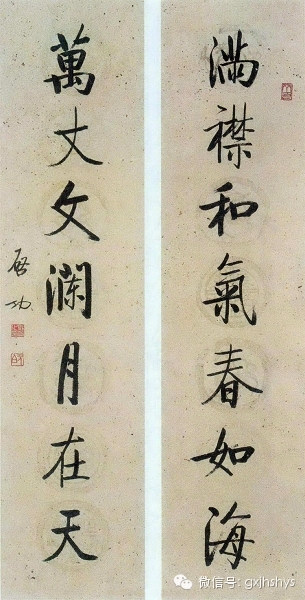 滿襟和氣春如海
萬丈文瀾月在天
啓功
微信号: gxjhshys